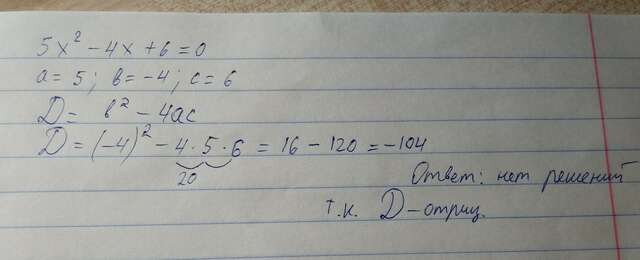 5x² - 4x + 6 = 0
a = 5; b = -4; c = 6
D = b² - 4ac
D = (-4)² - 4 · 5 · 6 = 16 - 120 = -104
20
Ответ: нет решений
т.к. D - отриц.